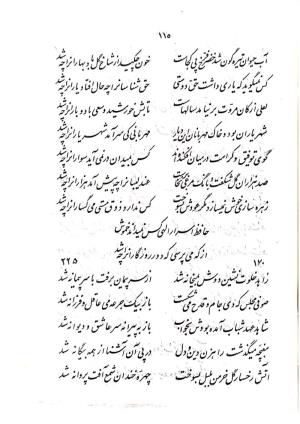 ۱۱۵
آب حیوان تیره گون شد خضر فرخ پی کجاست خون چکید از شاخ گل باد بهاران را چه شد
کس نمیگوید که یاری داشت حق دوستی حق شناسان را چه حال افتاد یاران را چه شد
لعلی از کان مروت بر نیامد سالهاست تابش خورشید و سعی باد و باران را چه شد
شهر یاران بود و خاک مهربانان این دیار مهربانی کی سر آمد شهریاران را چه شد
گوی توفیق و کرامت در میان افکنده‌اند کس بمیدان در نمی آید سواران را چه شد
صد هزاران گل شکفت و بانگ مرغی برنخاست عندلیبان را چه پیش آمد هزاران را چه شد
زهره سازی خوش نمیسازد مگر عودش بسوخت کس ندارد ذوق مستی میگساران را چه شد
حافظ اسرار الهی کس نمیداند خموش
از که می پرسی که دور روزگاران را چه شد
۱۷۰
۲۲۵
زاهد خلوت نشین دوش بمیخانه شد از سر پیمان برفت با سر پیمانه شد
صوفی مجلس که دی جام و قدح میشکست باز بیک جرعه می عاقل و فرزانه شد
شاهد عهد شباب آمده بودش بخواب باز به پیرانه سر عاشق و دیوانه شد
مغبچه میگذشت راهزن دین و دل در پی آن آشنا از همه بیگانه شد
آتش رخسار گل خرمن بلبل بسوخت چهرهٔ خندان شمع آفت پروانه شد